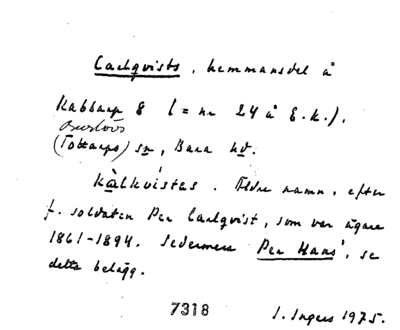 Carlqvists, hemmansdel å
Kabbarp 8 (= nr 24 å E.k.).
Burlövs
(Tottarps) sn, Bara hd.
kàlkvístas. Äldre namn, efter
f. soldaten Per Carlqvist, som var ägare
1861-1894. Sedermera Per Hans', se
detta belägg.
7318 I. Ingers 1975.